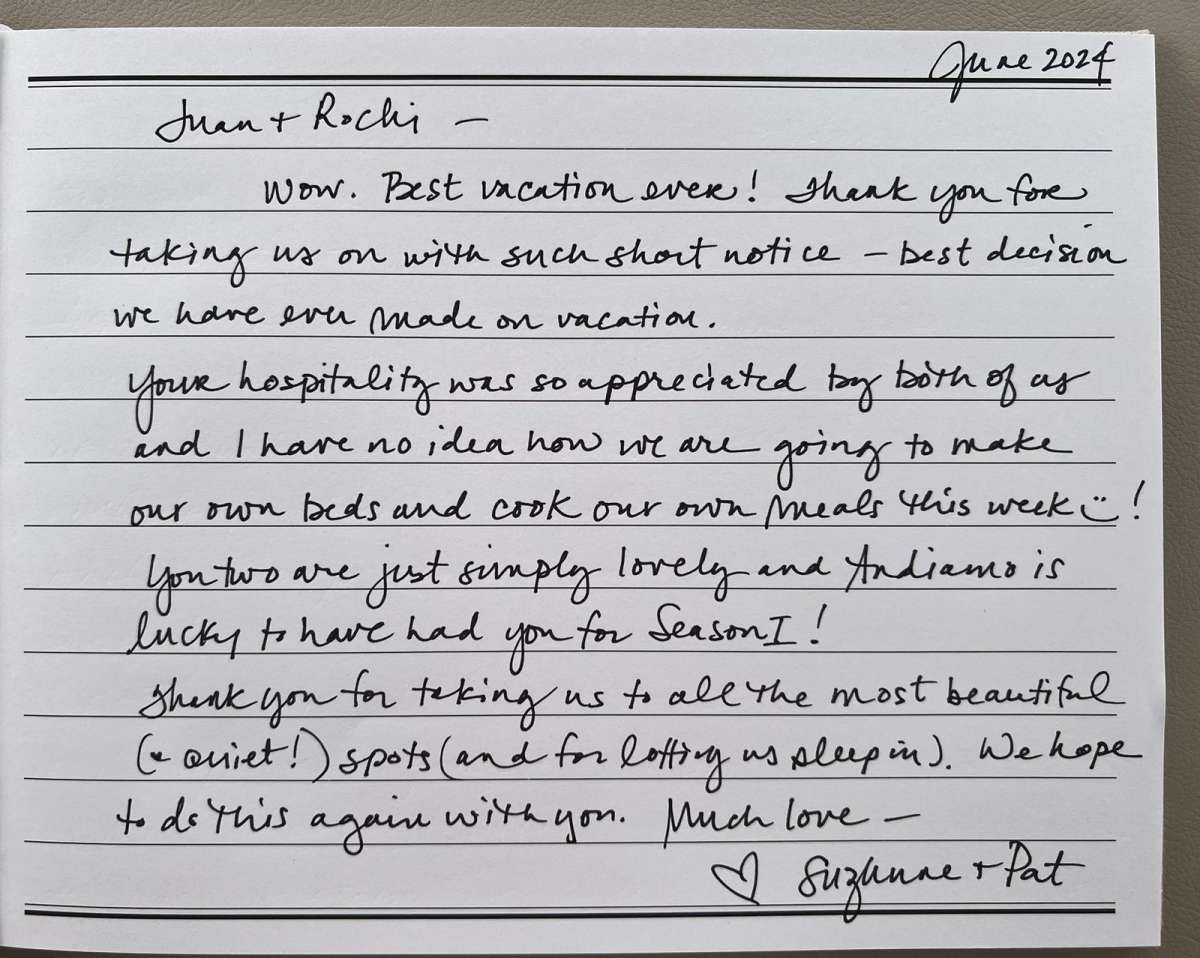 June 2024
Juan + Rochi —
Wow. Best vacation ever! Thank you for
taking us on with such short notice – best decision
we have ever made on vacation.
Your hospitality was so appreciated by both of us
and I have no idea how we are going to make
our own beds and cook our own meals this week :)!
You two are just simply lovely and Andiamo is
lucky to have had you for Season I!
Thank you for taking us to all the most beautiful
(+ quiet!) spots (and for letting us sleep in). We hope
to do this again with you. Much love —
♡ Suzanne + Pat